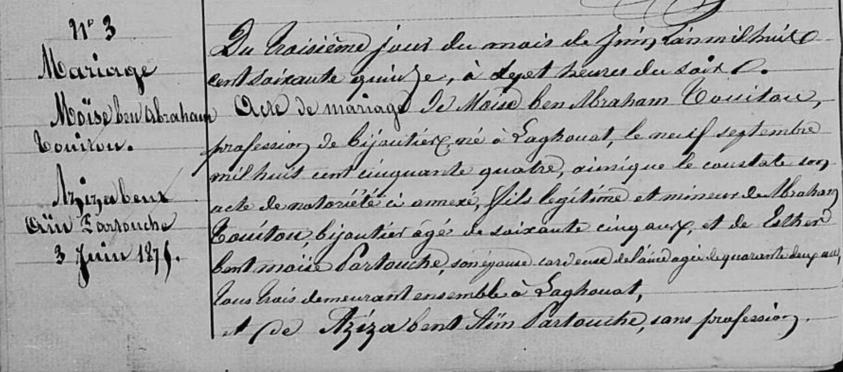 N° 3
Mariage
Moïse ben Abraham
Touitou.
Aziza bent
Aïn Partouche
3 Juin 1875.
Du troisième jour du mois de Juin, l'an mil huit
cent soixante quinze, à sept heures du soir.
Acte de mariage de Moïse ben Abraham Touitou,
profession de bijoutier né à Laghouat, le neuf septembre
mil huit cent cinquante quatre, ainsi que le constate son
acte de notoriété ci annexé, fils légitime et mineur de Abraham
Touitou, bijoutier âgé de soixante cinq ans, et de Esther
bent moïse Partouche, son épouse cardeuse de laine agée de quarante deux ans,
tous trois demeurant ensemble à Laghouat,
et de Aziza bent Aïn Partouche, sans profession.